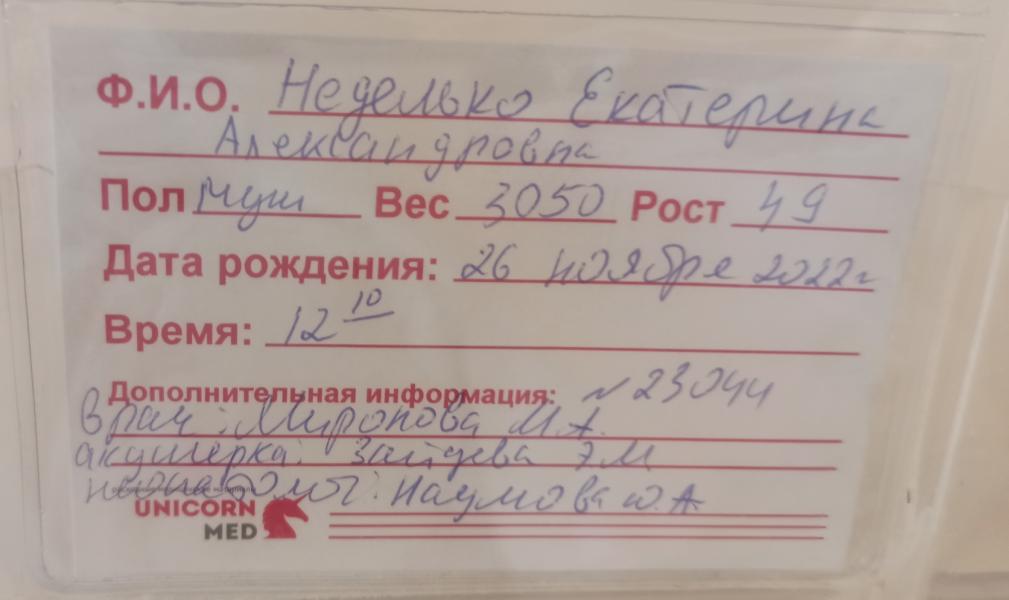 Ф.И.О. Неделько Екатерина
Александровна
Пол муж Вес 3050 Рост 49
Дата рождения: 26 ноября 2022г
Время: 12 10
Дополнительная информация: №23044
Врач: Миронова М.А.
акушерка: Зайцева Э.М
неонатолог: Наумова Ю.А
UNICORN
MED